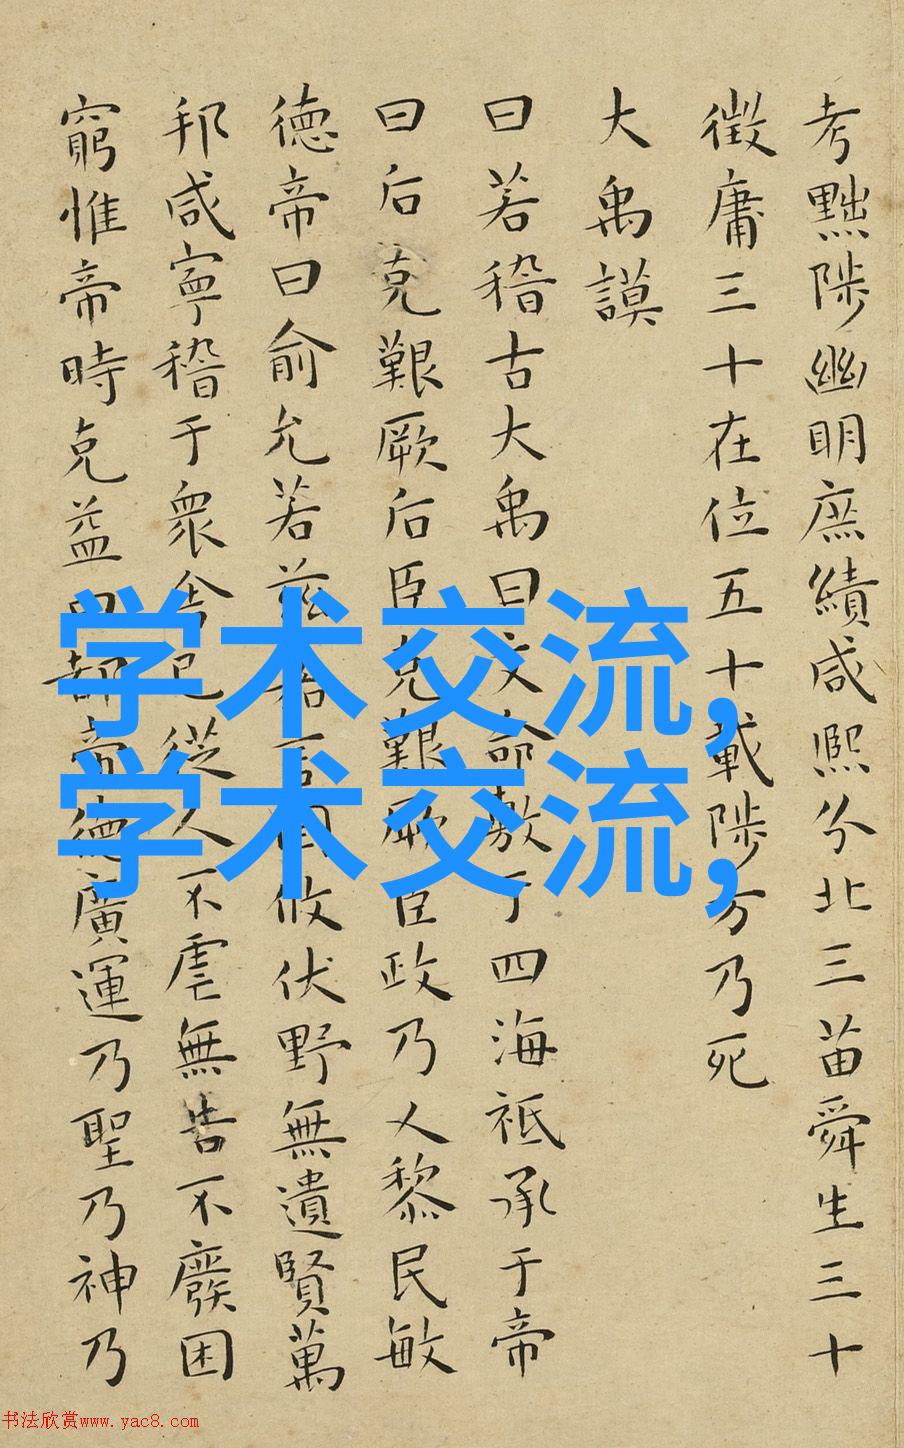 考黜陟幽明庶績咸熙分北三苗舜生三十
徵庸三十在位五十載陟方乃死
大禹謨
曰若稽古大禹曰文命敷于四海祗承于帝
曰后克艱厥后臣克艱厥臣政乃乂黎民敏
德帝曰俞允若茲嘉言罔攸伏野無遺賢萬
邦咸寧稽于衆舍己從人不虐無告不廢困
窮惟帝時克益曰都帝德廣運乃聖乃神乃
学术交流,
学术交流,
书法欣赏www.yac8.com